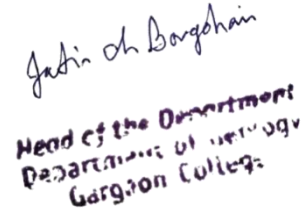 Jatin Ch Borgohain
Head of the Department
Department of
Gargaon College